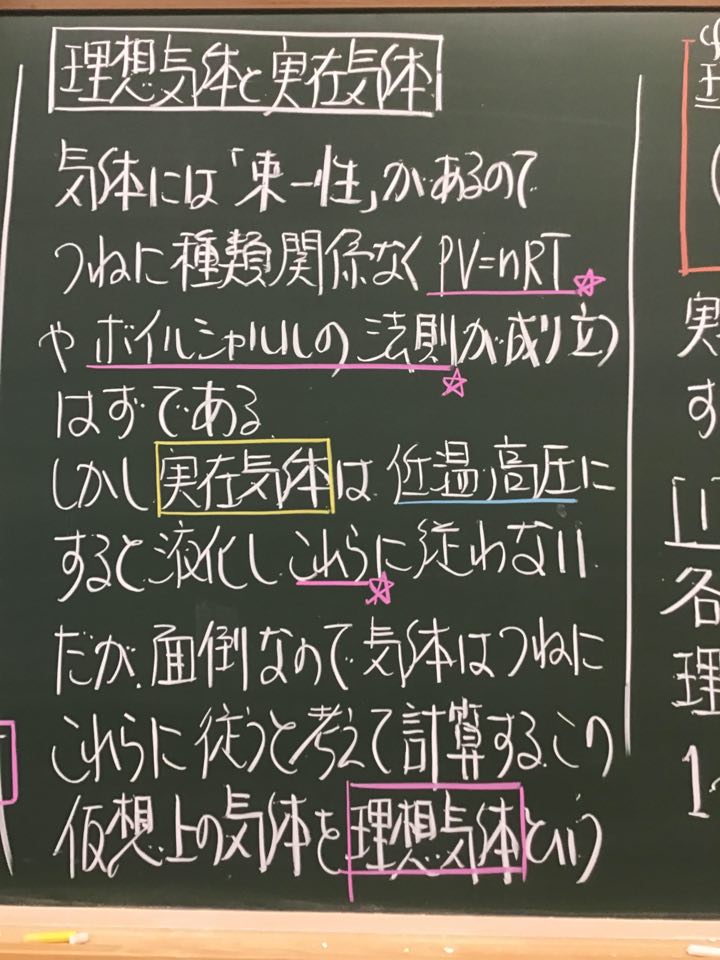 理想気体と実在気体
気体には「束一性」があるので
つねに種類関係なく PV=nRT☆
や ボイルシャルルの法則☆が成り立つ
はずである
しかし 実在気体 は 低温,高圧に
すると液化し これら☆に従わない
だが,面倒なので気体はつねに
これらに従うと考えて計算する,この
仮想上の気体を 理想気体 という
実
す
各
理